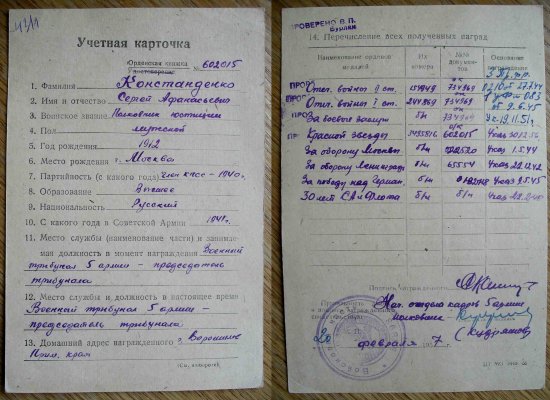 Учетная карточка
Орденская книжка № 602015
1. Фамилия Констанденко
2. Имя и отчество Сергей Афанасьевич
3. Воинское звание Полковник юстиции
4. Пол мужской
5. Год рождения 1912
6. Место рождения г. Москва
7. Партийность (с какого года) Член КПСС – 1940 г.
8. Образование Высшее
9. Национальность Русский
10. С какого года в Советской Армии 1941 г.
11. Место службы (наименование части) и занимае-
мая должность в момент награждения Военный
трибунал 5 армии – председатель
трибунала
12. Место службы и должность в настоящее время
Военный трибунал 5 армии –
председатель трибунала
13. Домашний адрес награжденного г. Ворошилов
Прим. края
(См. на обороте)
ПРОВЕРЕНО В.П.
14. Перечисление всех полученных наград
Наименование орденов
медалей
№№
номера
№№
докумен-
тов
Основание
награждения
Отеч. войны I ст. 734969
Отеч. войны II ст. 734969
За боевые заслуги б/н 734969 Ук. 19.11.51 г.
Красной звезды 602015 Указ 30.12.56
За оборону Москвы б/н Указ 1.5.44
За оборону Ленинграда б/н 65554 Указ 22.12.42
За победу над Герман. б/н Указ 9.5.45
30 лет СА и Флота б/н Указ 22.2.48
Подпись награжденного
Нач. отдела кадров 5 армии
полковник
(Кудряшов)
20 февраля 1957